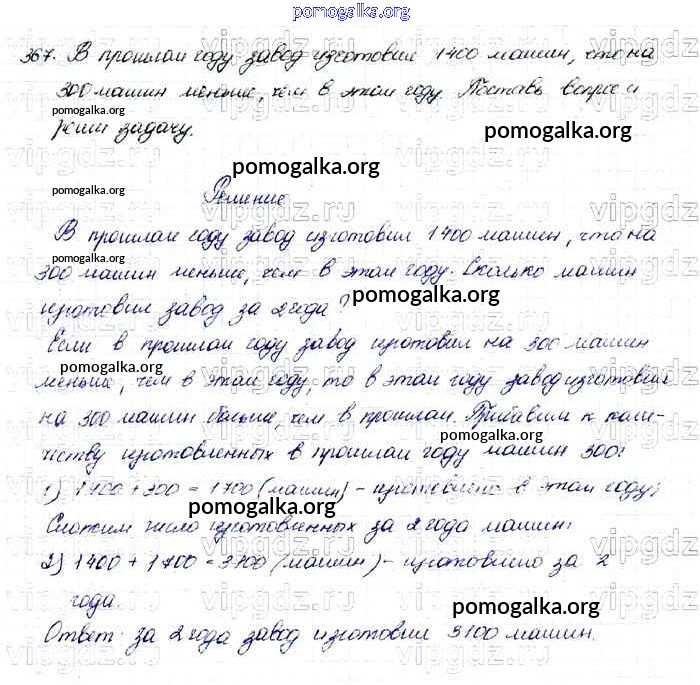 pomogalka.org
367. В прошлом году завод изготовил 1400 машин, что на
300 машин меньше, чем в этом году. Поставь вопрос и
pomogalka.org
реши задачу.
pomogalka.org
pomogalka.org
pomogalka.org
Решение
В прошлом году завод изготовил 1400 машин, что на
pomogalka.org
300 машин меньше, чем в этом году. Сколько машин
изготовил завод за 2 года?
pomogalka.org
Если в прошлом году завод изготовил на 300 машин
pomogalka.org
меньше, чем в этом году, то в этом году завод изготовил
на 300 машин больше, чем в прошлом. Прибавим к коли-
pomogalka.org
честву изготовленных в прошлом году машин 300:
1) 1400 + 300 = 1700 (машин) - изготовлено в этом году;
pomogalka.org
Сложим число изготовленных за 2 года машин:
2) 1400 + 1700 = 3100 (машин) - изготовлено за 2
pomogalka.org
года.
pomogalka.org
Ответ: за 2 года завод изготовил 3100 машин.